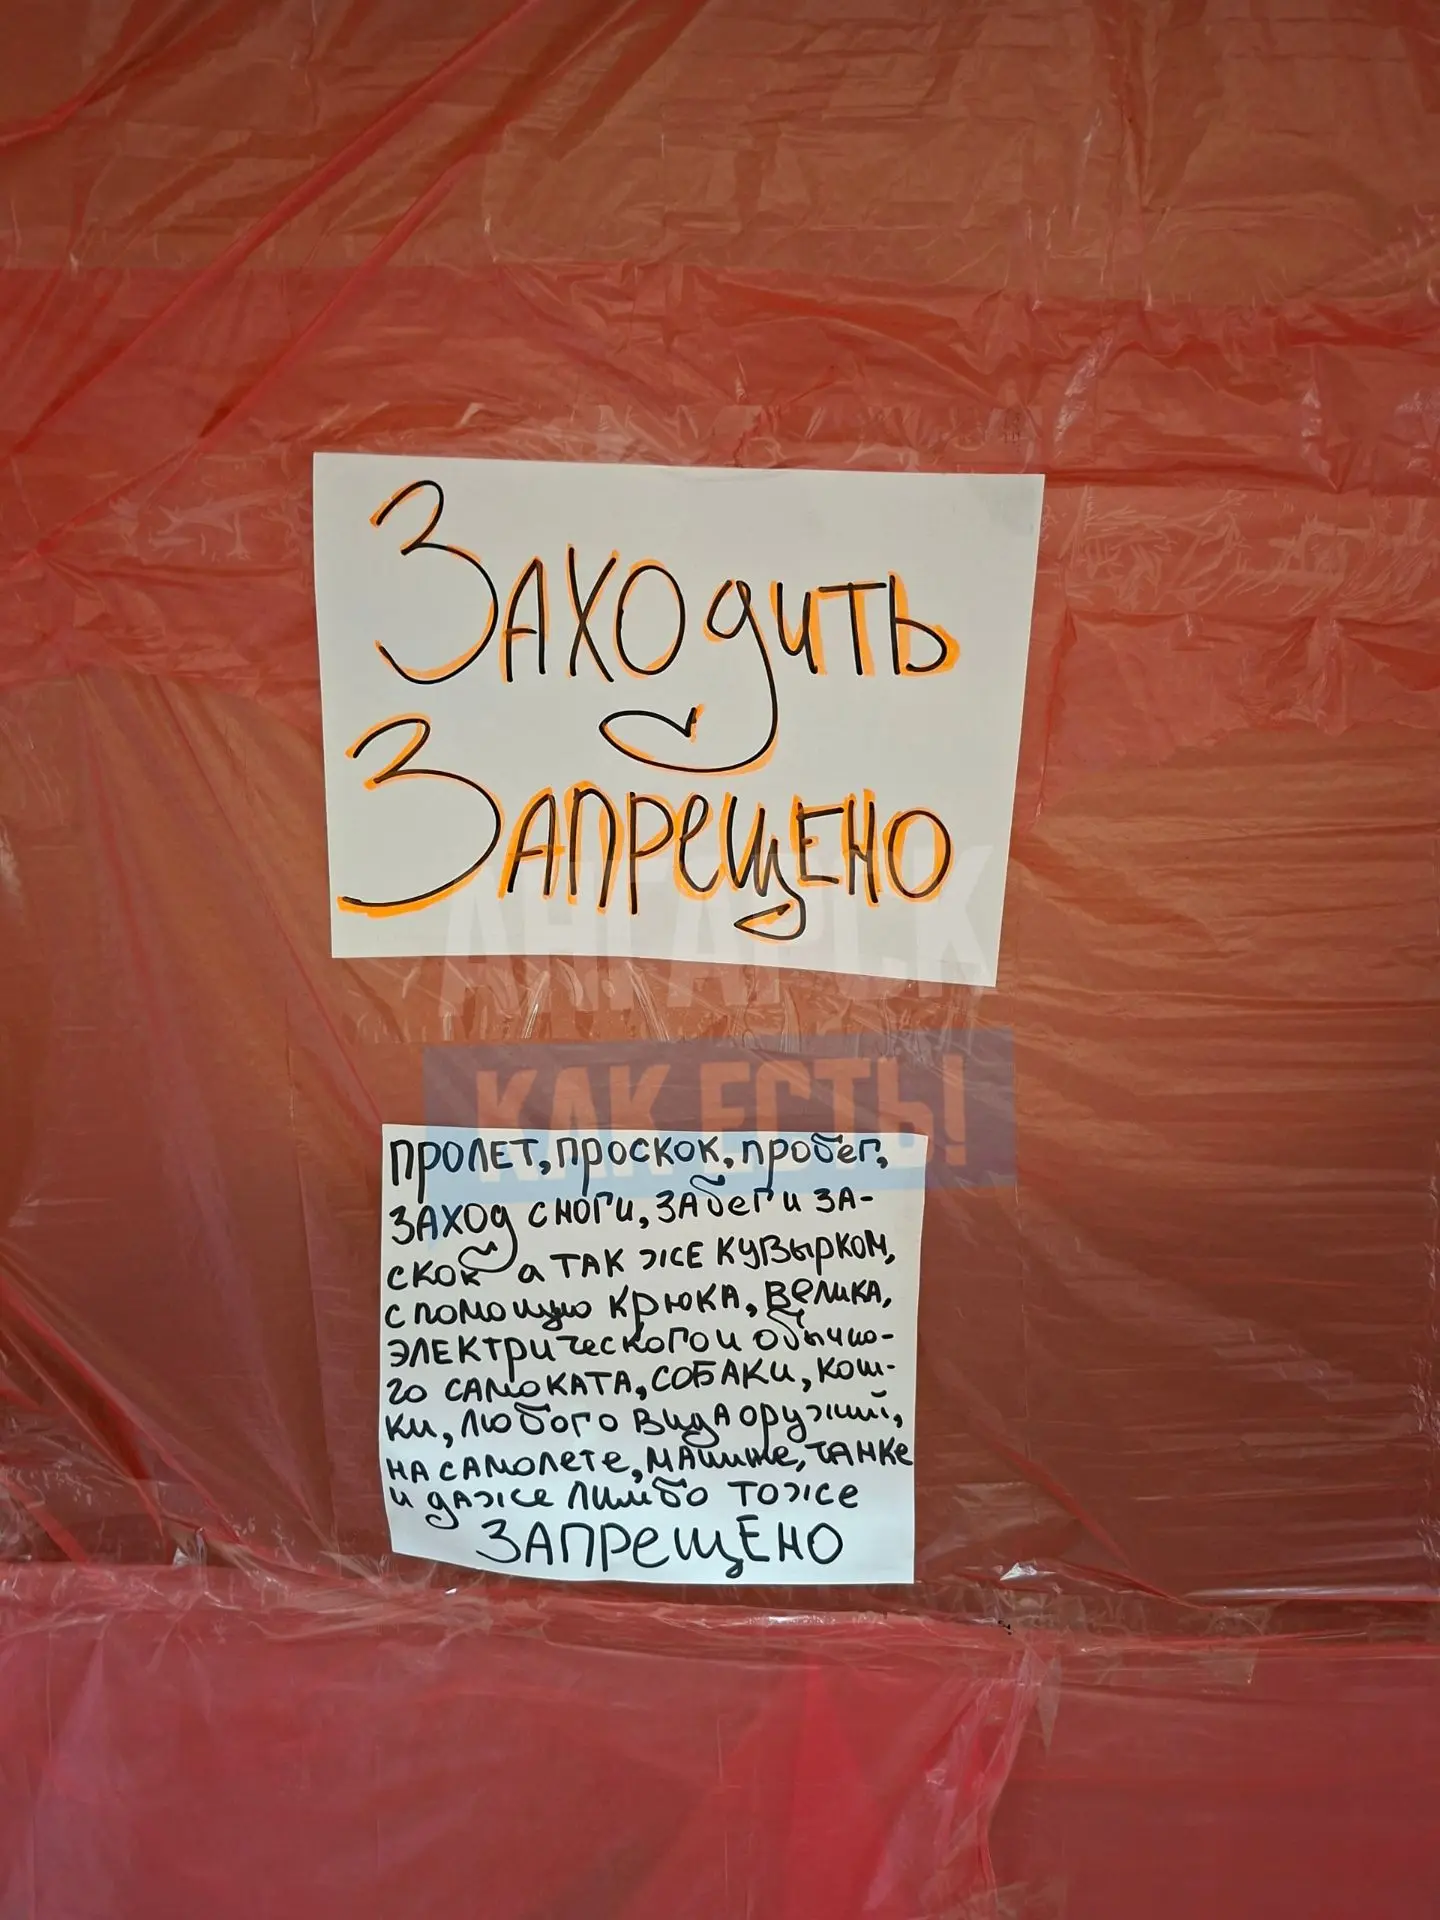 Заходить
Запрещено
АНГАРСК
КАК ЕСТЬ!
ПРОЛЕТ, ПРОСКОК, пробег,
ЗАХОД С НОГИ, ЗАбег и ЗА-
СКОК а ТАК ЖЕ КУВЫРКОМ,
С помощью КРЮКА, Велика,
ЭЛЕКТрического и обычно-
го САМОКАТА, СОБАКИ, Кош-
ки, любого вида оружий,
НА САМОЛЕТЕ, МАшине, ТАНКе
и даже лимбо тоже
ЗАПРЕЩЕНО